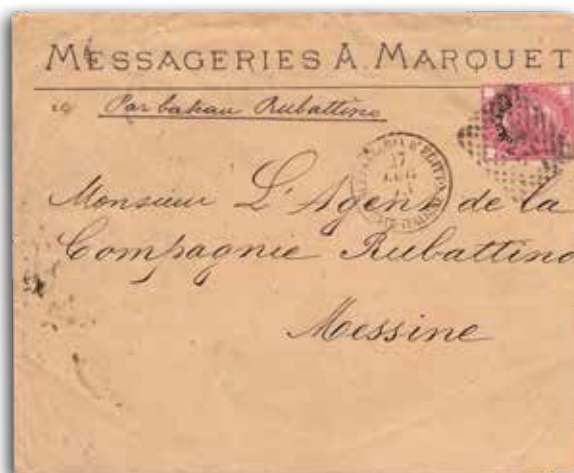 MESSAGERIES A. MARQUET
Par bateau Rubattino
ALESSANDRIA D'EGITTO
17
Monsieur L'Agent de la
Compagnie Rubattino
Messine